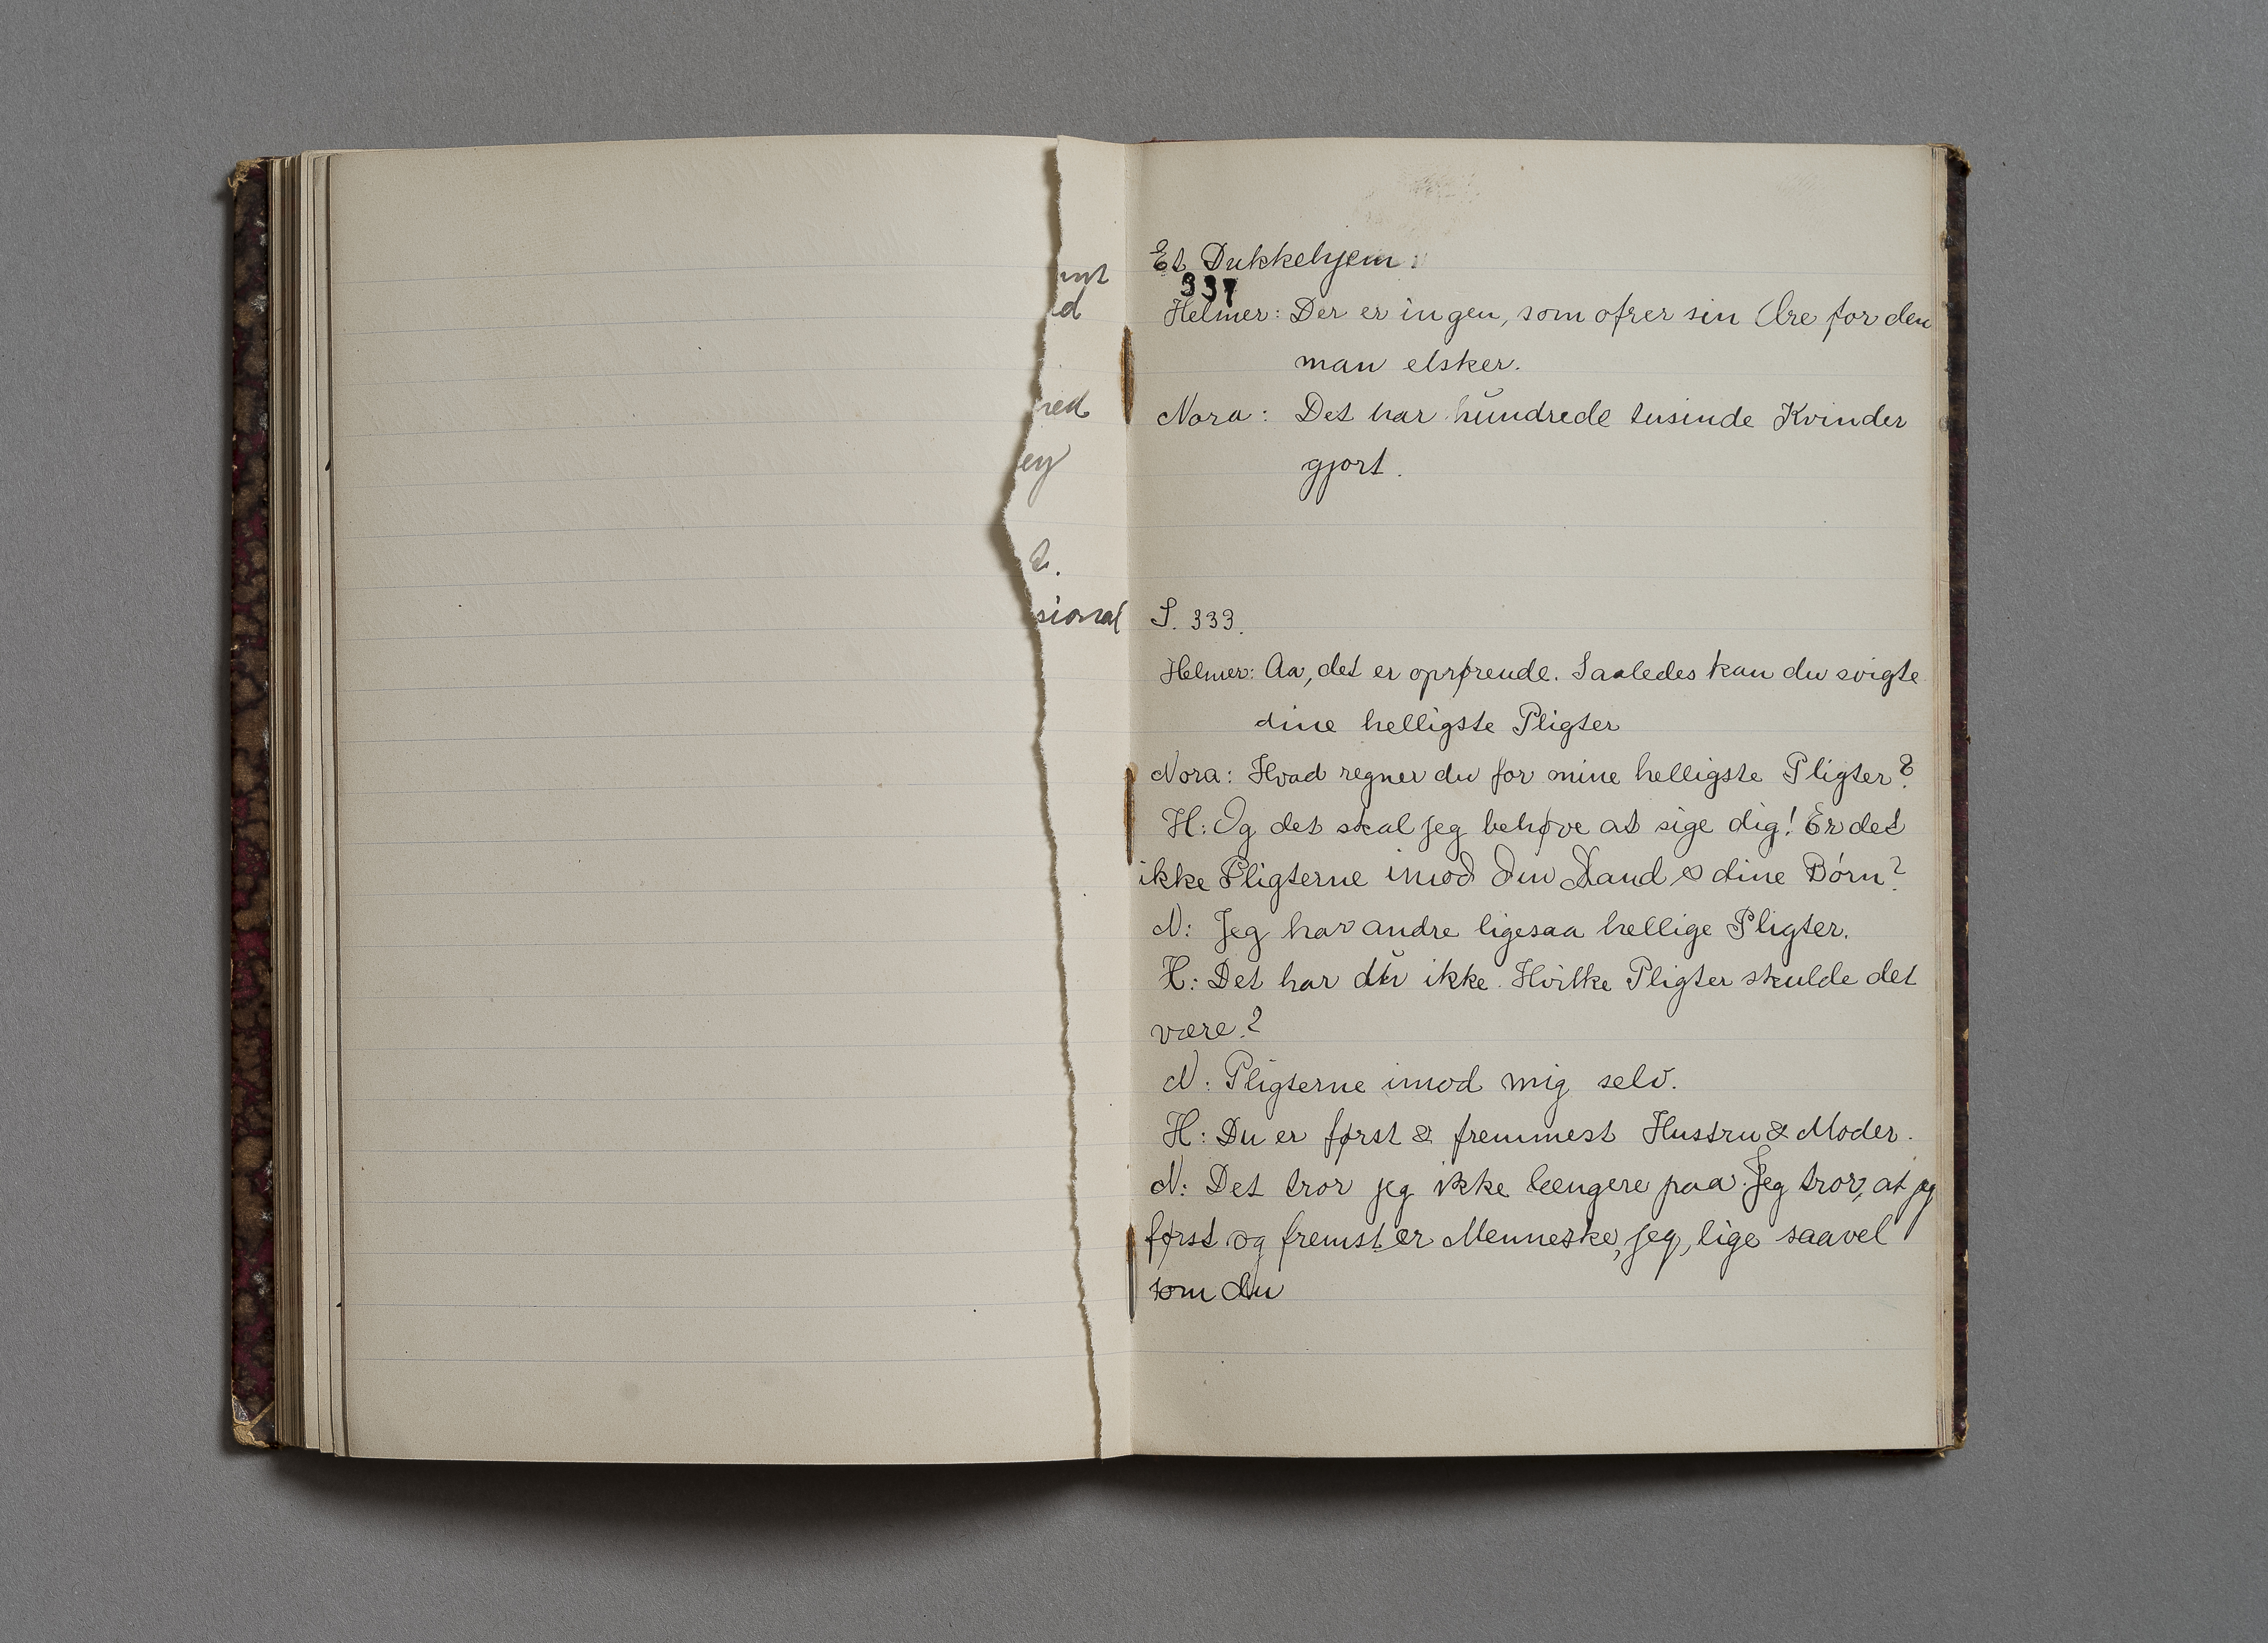 nt
d
red
ey
t.
sional
Et Dukkehjem
337
Helmer: Der er ingen, som ofrer sin Ære for den
man elsker.
Nora: Det har hŭndrede tusinde Kvinder
gjort.
S. 333.
Helmer: Aa, det er oprørende. Saaledes kan du svigte
dine helligste Pligter
Nora: Hvad regner du for mine helligste Pligter?
H: Og det skal jeg behøve at sige dig! Er det
ikke Pligterne imod din Mand & dine Börn?
N: Jeg har andre ligesaa hellige Pligter.
H: Det har dŭ ikke. Hvilke Pligter skulde det
være?
N: Pligterne imod mig selv.
H: Du er først & fremmest Hustru & Moder.
N: Det tror jeg ikke længere paa. Jeg tror, at jeg
først og fremst er Menneske, jeg, lige saavel
som du